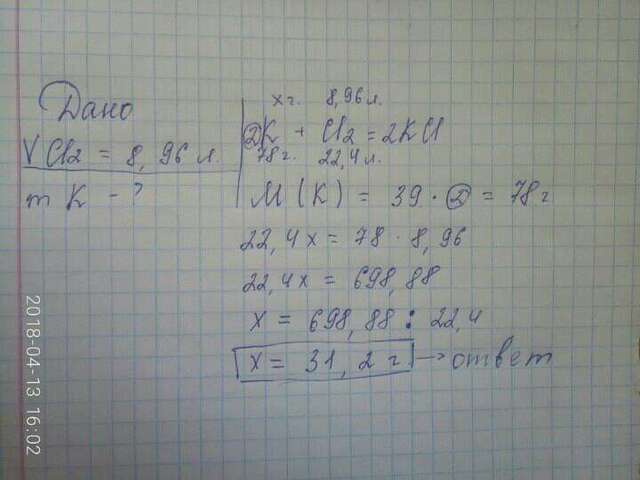 Дано
V Cl2 = 8,96 л.
m K - ?
x г. 8,96 л.
2K + Cl2 = 2KCl
78 г. 22,4 л.
M (K) = 39 · 2 = 78 г
22,4x = 78 · 8,96
22,4x = 698,88
x = 698,88 : 22,4
x = 31,2 г → ответ
2018-04-13 16:02